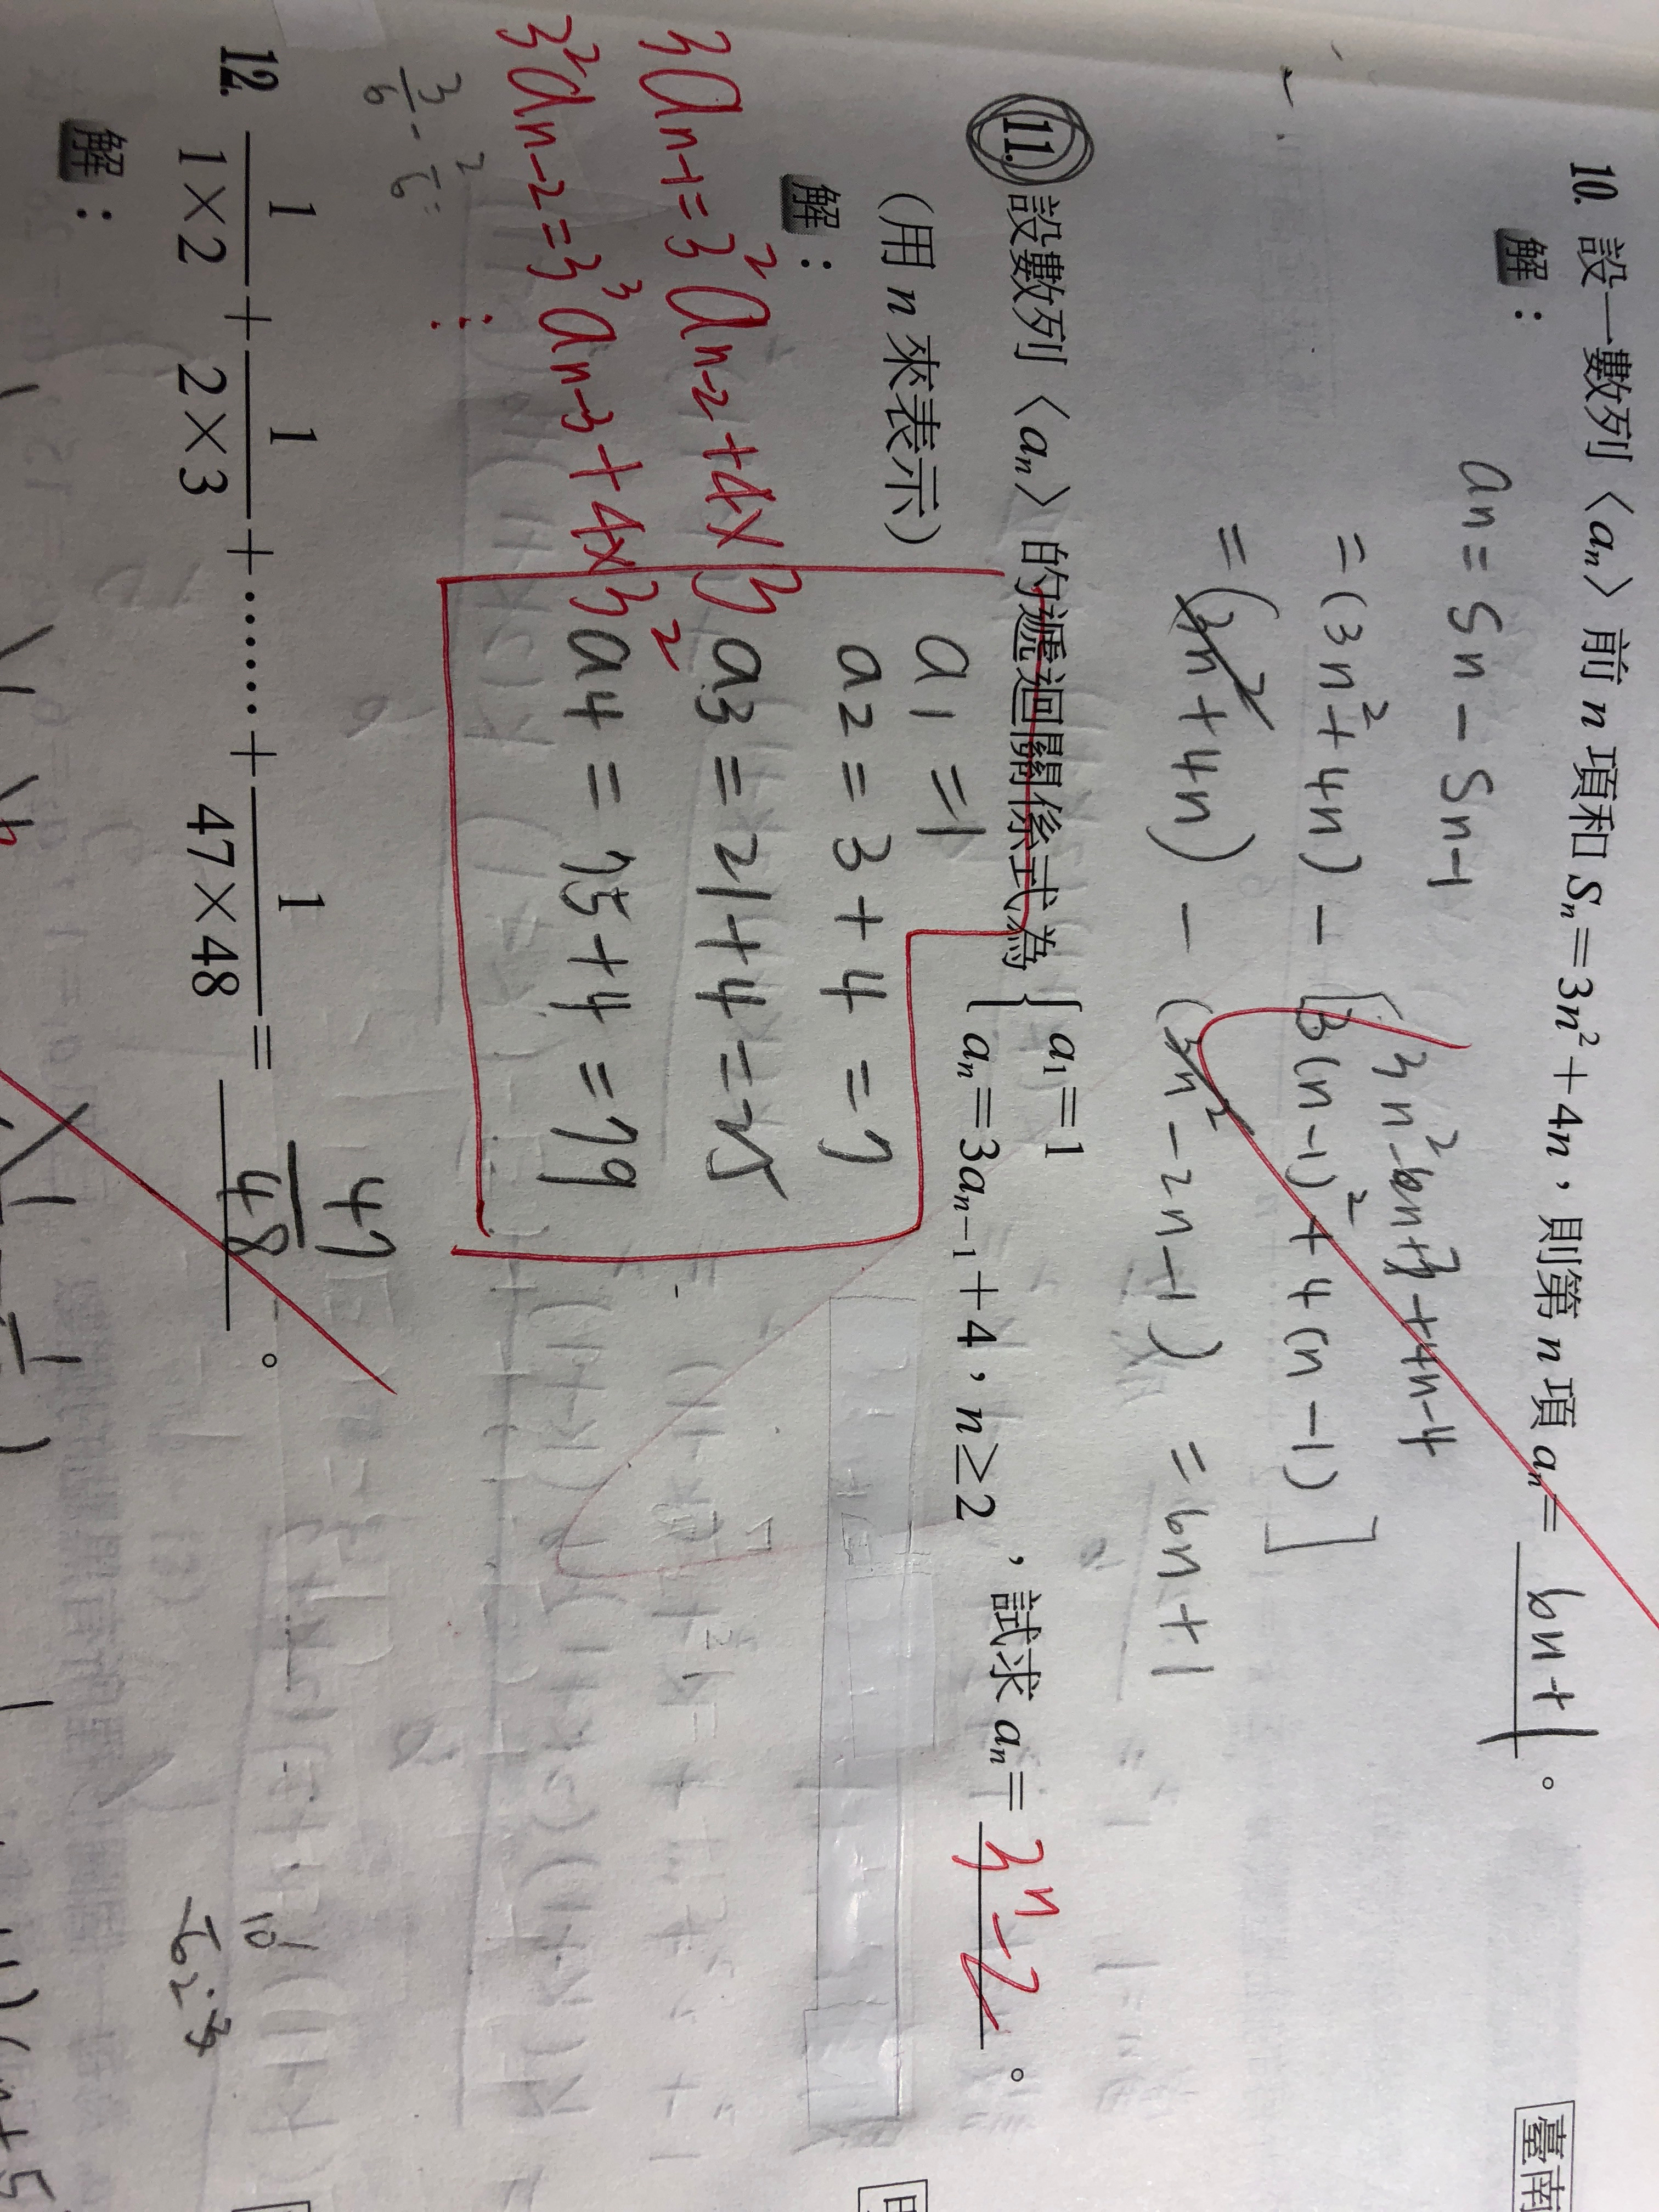 10. 設一數列〈aₙ〉前 n 項和 Sₙ=3n²+4n，則第 n 項 aₙ= 6n+1 。
解：
an = Sn - Sn-1
3n²-6n+3+4n-4
= (3n²+4n) - [3(n-1)²+4(n-1)]
= (3n²+4n) - (3n²-2n-1) = 6n+1
11. 設數列〈aₙ〉的遞迴關係式為 { a₁=1
aₙ=3aₙ₋₁+4，n≥2 ，試求 aₙ= 3ⁿ-2 。
（用 n 來表示）
解：
a1 = 1
a2 = 3+4 = 7
a3 = 21+4 = 25
a4 = 75+4 = 79
3an-1=3²an-2+4×3
3²an-2=3³an-3+4×3²
⋮
12. 1/1×2 + 1/2×3 + …… + 1/47×48 = 47/48 。
解：
臺南